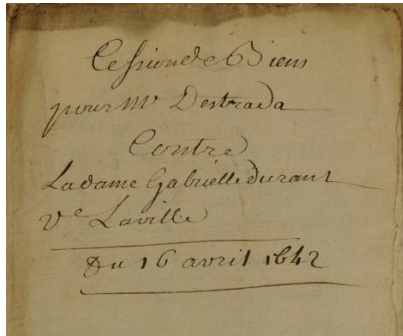 Cession de Biens
pour Mr Destrada
Contre
La dame Gabrielle durant
Ve Laville
Du 16 avril 1642